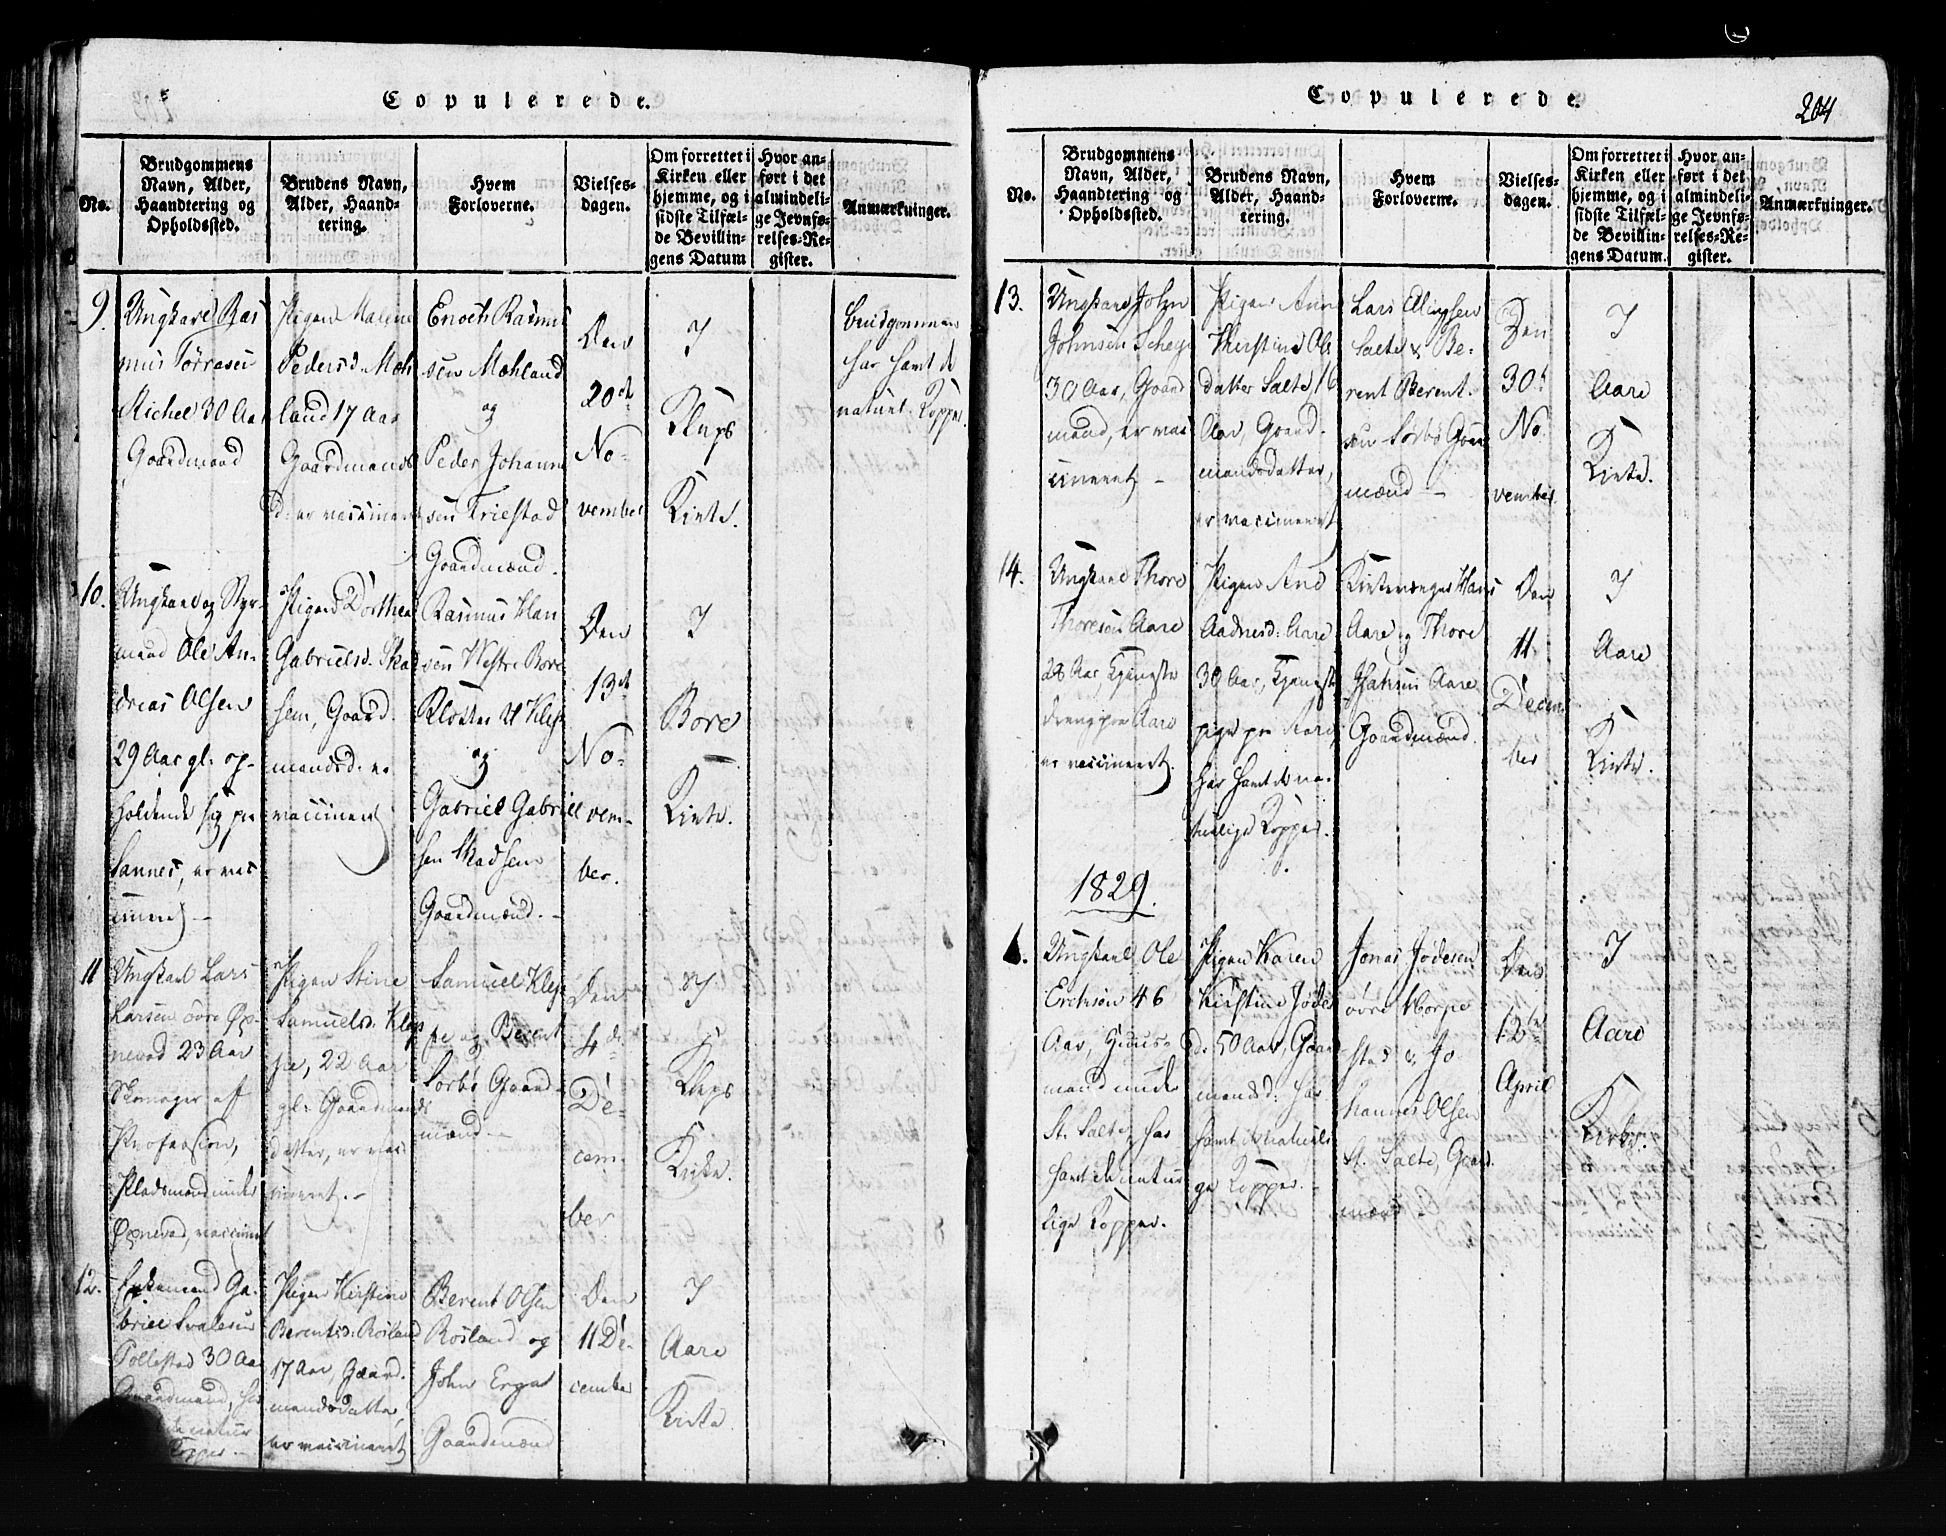 Copulerede.
No.
Brudgommens
Navn, Alder,
Haandtering og
Opholdssted.
Brudens Navn,
Alder, Haand-
tering.
Hvem
Forloverne.
Vielses-
dagen.
Om forrettet i
Kirken eller
hjemme, og i
sidste Tilfæl-
de Bevillin-
gens Datum
Hvor an-
ført i det
almindeli-
ge Jevnfø-
relses-Re-
gister.
Anmærkninger.
9.
Ungkarl Ras
mus Törresen
30 Aar
Gaardmand
Pigen Malene
Pedersd. Moh
land 17 Aar
Gaardmands
d: er vaccineret
Enoch Rasmus
sen Mohland
og
Peder Johanne
sen Friestad
Gaardmænd.
Den
20de
No-
vember
I
Kleps
Kirke.
Brudgommen
har havt de
naturl. Kopper.
10.
Ungkarl og Styr-
mand Ole An-
dreas Olsen
29 Aar gl. op-
holdende sig paa
Sannes, er vac
cineret –
Pigen Dorthea
Gabrielsd. Skad
sem, Gaard-
mandsd. er
vaccineret
Rasmus Han
sen Westre Bore
Kloster
og
Gabriel Gabriel
sen Skadsem
Gaardmænd. –
Den
13de
No-
vem-
ber.
I
Bore
Kirke.
11
Ungkarl Lars
Larsen övre Øx-
nevad 23 Aar
Skomager af
Profession,
Pladsmand under
Øxnevad, vaccineret
Pigen Stine
Samuelsd. Klep
pe, 22 Aar
gl. Gaardmands
datter, er vac
cineret. –
Samuel Klep
pe og Berent
Sörbö Gaard-
mænd –
Den
4de
De-
cem-
ber
I
Kleps
Kirke.
12.
Enkemand Ga-
briel Svalesen
Tollestad 30 Aar
Gaardmand, har
natur
Kopper –
Pigen Kirstine
Berentsd: Rosland
17 Aar, Gaard-
mandsdatter,
er vaccineret
Berent Olsen
Rosland og
John Erga
Gaardmænd
Den
11 De-
cember
I
Aare
Kirke
Copulerede.
204
No.
Brudgommens
Navn, Alder,
Haandtering og
Opholdssted.
Brudens Navn,
Alder, Haand-
tering.
Hvem
Forloverne.
Vielses-
dagen.
Om forrettet i
Kirken eller
hjemme, og i
sidste Tilfæl-
de Bevillin-
gens Datum.
Hvor an-
ført i det
almindeli-
ge Jevnfø-
relses-Re-
gister.
Anmærkninger.
13.
Ungkarl John
Johnsen
30 Aar, Gaard
mand, er vac
cineret –
Pigen Anne
Kirstine Ols
datter Salte 16
Aar, Gaard-
mandsdatter,
er vaccineret
Lars Ellingsen
Salte & Be-
rent Berent-
sen Sörbö Gaar
mænd –
Den
30te
No-
vember.
I
Aare
Kirke.
14.
Ungkarl Thore
Thoresen Aare
28 Aar, Tjeneste
dreng paa Aare
er vaccineret.
Pigen Ane
Aadnesd: Aare
30 Aar, Tjeneste
pige paa Aare,
har havt de na-
turlige Kopper.
Kirkeværger Hans
Aare og Thore
Aare
Gaardmænd.
Den
11
Decem
ber
I
Aare
Kirke.
1829.
1.
Ungkarl Ole
Erichsön 46
Aar, Huus-
mand under
St. Salte, har
havt de natur
lige Kopper.
Pigen Karen
Kirstine Jödes
d. 50 Aar, Gaard
mandsd: har
havt de naturli
ge Kopper. –
Jonas Jödesen
övre Horpe
stad & Jo
hannes Olsen
St. Salte, Gaard
mænd
Den
12te
April
I
Aare
Kirke.